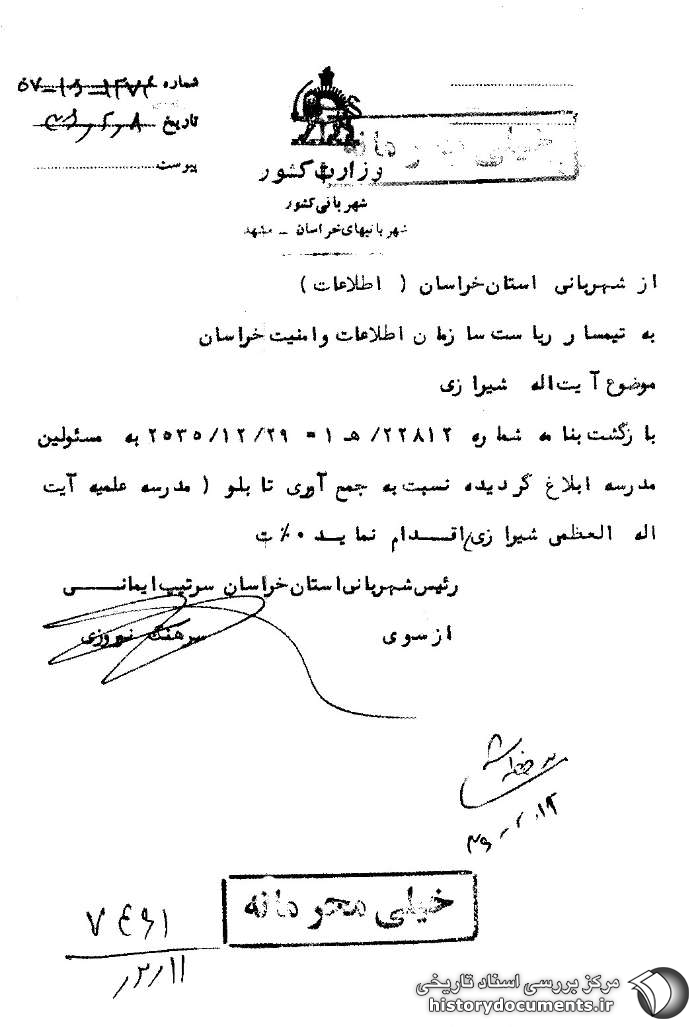 شماره
تاریخ
پیوست
خیلی محرمانه
وزارت کشور
شهربانی کشور
شهربانیهای خراسان - مشهد
از شهربانی استان خراسان ( اطلاعات )
به تیمسار ریاست سازمان اطلاعات وامنیت خراسان
موضوع آیت اله شیرازی
بازگشت بنامه شماره ۲۲۸۱۲/ هـ ۱ = ۲۵۳۵/۱۲/۲۹ به مسئولین
مدرسه ابلاغ گردیده نسبت به جمع آوری تابلو ( مدرسه علمیه آیت
اله العظمی شیرازی) اقدام نماید
رئیس شهربانی استان خراسان سرتیپ ایمانی
ازسوی سرهنگ نوروزی
خیلی محرمانه
مرکز بررسی اسناد تاریخی
historydocuments.ir